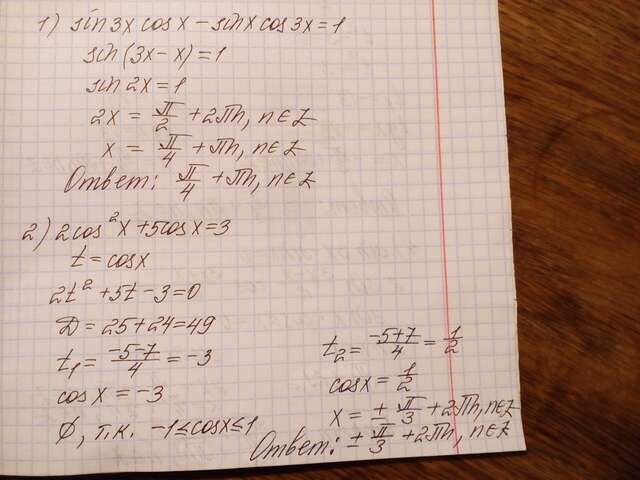 1) sin 3x cosx - sinx cos 3x = 1
sin (3x - x) = 1
sin 2x = 1
2x = π/2 + 2πn, n∈Z
x = π/4 + πn, n∈Z
Ответ: π/4 + πn, n∈Z
2) 2cos²x + 5cosx = 3
t = cosx
2t² + 5t - 3 = 0
Д = 25 + 24 = 49
t₁ = (-5-7)/4 = -3
cosx = -3
∅, т.к. -1 ≤ cosx ≤ 1
t₂ = (-5+7)/4 = 1/2
cosx = 1/2
x = ± π/3 + 2πn, n∈Z
Ответ: ± π/3 + 2πn, n∈Z